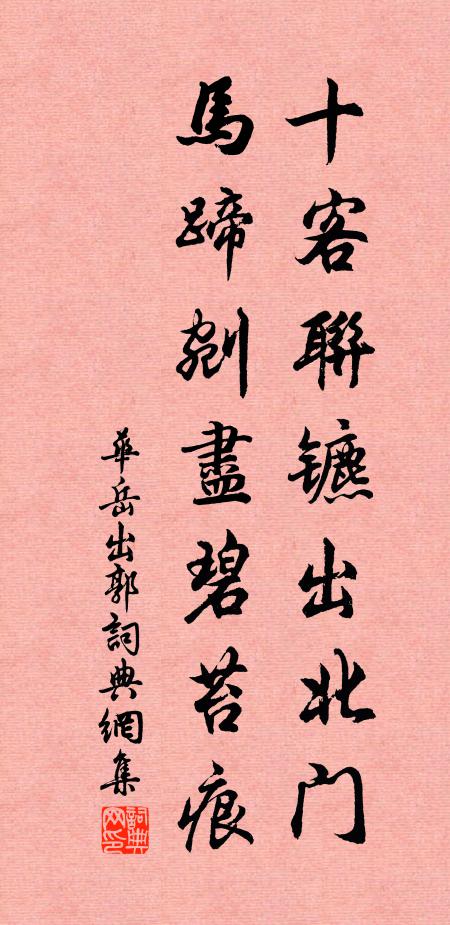 十客聯鑣出北門
馬蹄剜盡碧苔痕
華岳出郭詞典網集
詞典网印